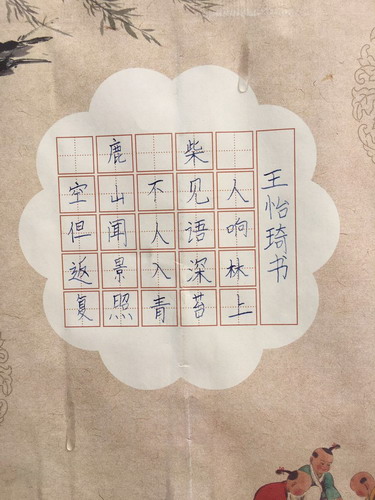 鹿柴
空山不见人
但闻人语响
返景入深林
复照青苔上
王怡琦书